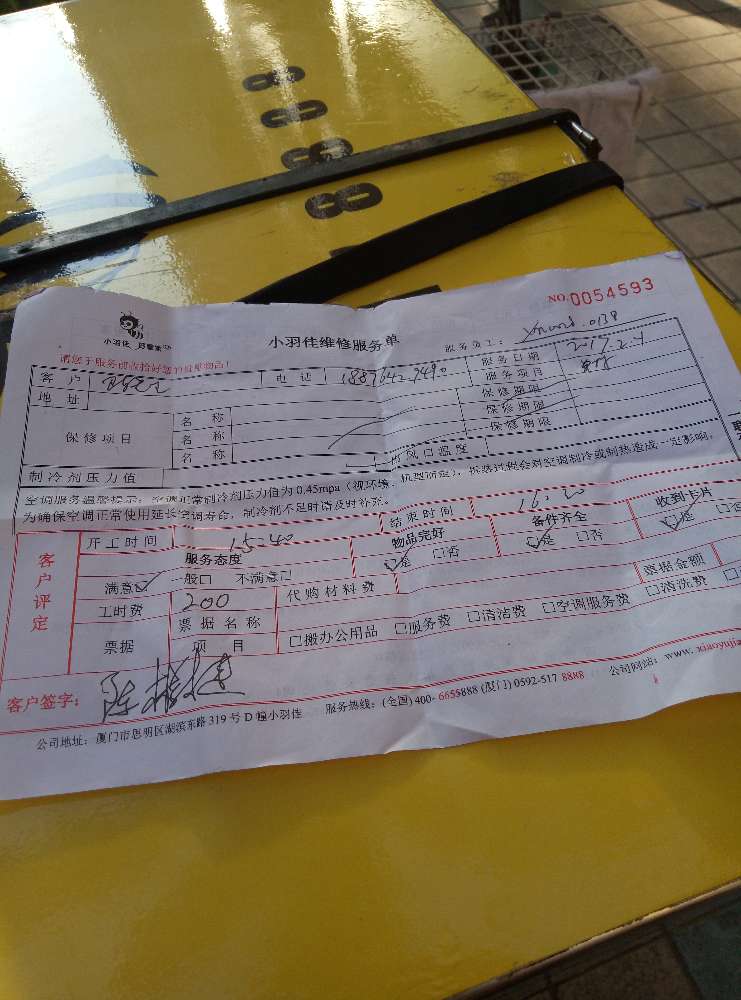 8888
NO.0054593
小羽佳
小羽佳维修服务单
服务员工: 0138
请您于服务前收拾好您的贵重物品!
客户 电话 服务日期 2017.2.4
地址 服务项目
保修项目 名称 保修期限
名称 保修期限
名称 保修期限
制冷剂压力值 出风口温度
空调服务温馨提示:空调正常制冷剂压力值为0.45mpa(视环境、机型而定),
为确保空调正常使用延长空调寿命,制冷剂不足时请及时补充。
客户评定
开工时间 15:40 结束时间 16:20
服务态度 物品完好 备件齐全 收到卡片
满意☑ 一般□ 不满意□ ☑是 □否 ☑是 □否 ☑是 □否
工时费 200 代购材料费
票据 票据名称 票据金额
项目 □搬办公用品 □服务费 □清洁费 □空调服务费 □清洗费
客户签字:
公司地址:厦门市思明区湖滨东路319号D幢小羽佳 服务热线:(全国)400-6655888(厦门)0592-517 8888 公司网站:www.xiaoyujia